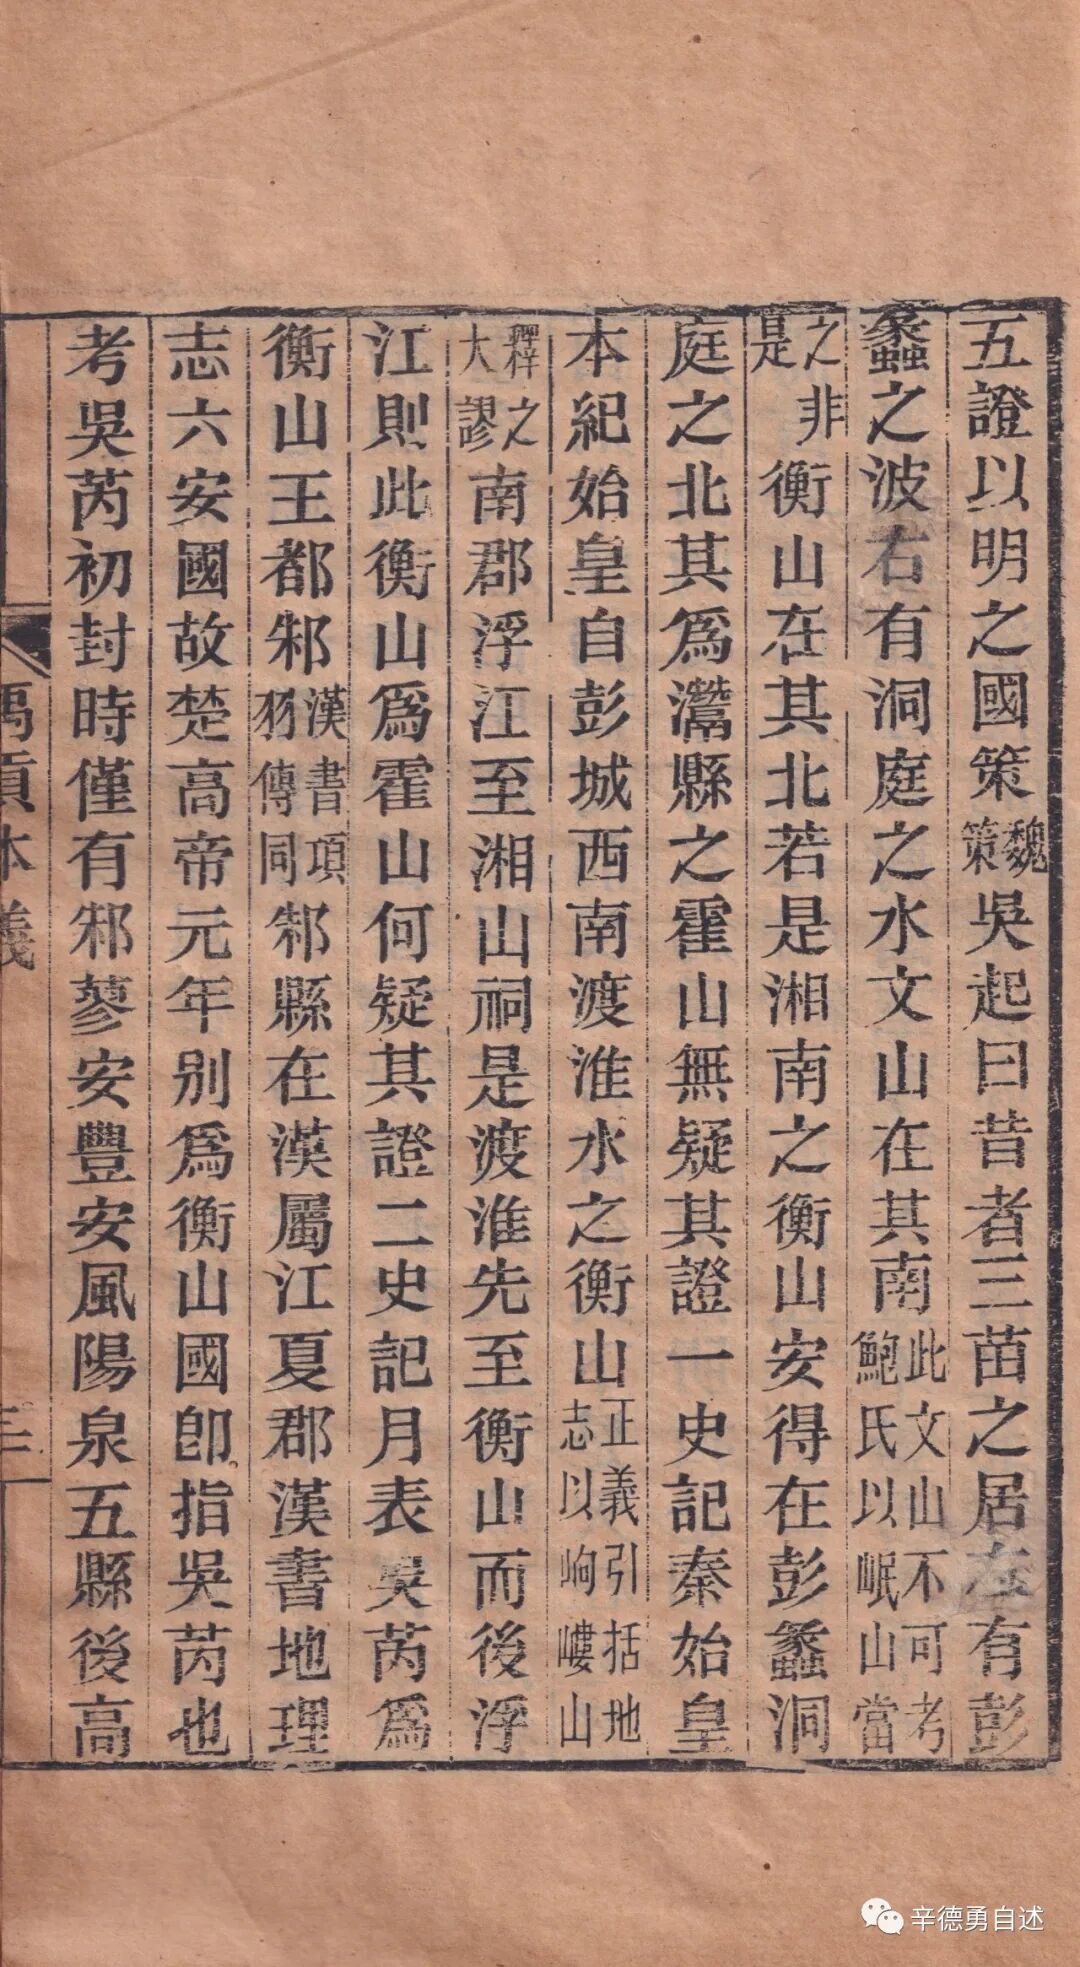 五證以明之國策魏策吳起曰昔者三苗之居左有彭
蠡之波右有洞庭之水文山在其南此文山不可考鮑氏以岷山當
之非是衡山在其北若是湘南之衡山安得在彭蠡洞
庭之北其爲灊縣之霍山無疑其證一史記秦始皇
本紀始皇自彭城西南渡淮水之衡山正義引括地志以岣嶁山
釋之大謬南郡浮江至湘山祠是渡淮先至衡山而後浮
江則此衡山爲霍山何疑其證二史記月表吳芮爲
衡山王都邾漢書項羽傳同邾縣在漢屬江夏郡漢書地理
志六安國故楚高帝元年别爲衡山國卽指吳芮也
考吳芮初封時僅有邾蓼安豐安風陽泉五縣後高
禹貢本義
三
辛德勇自述